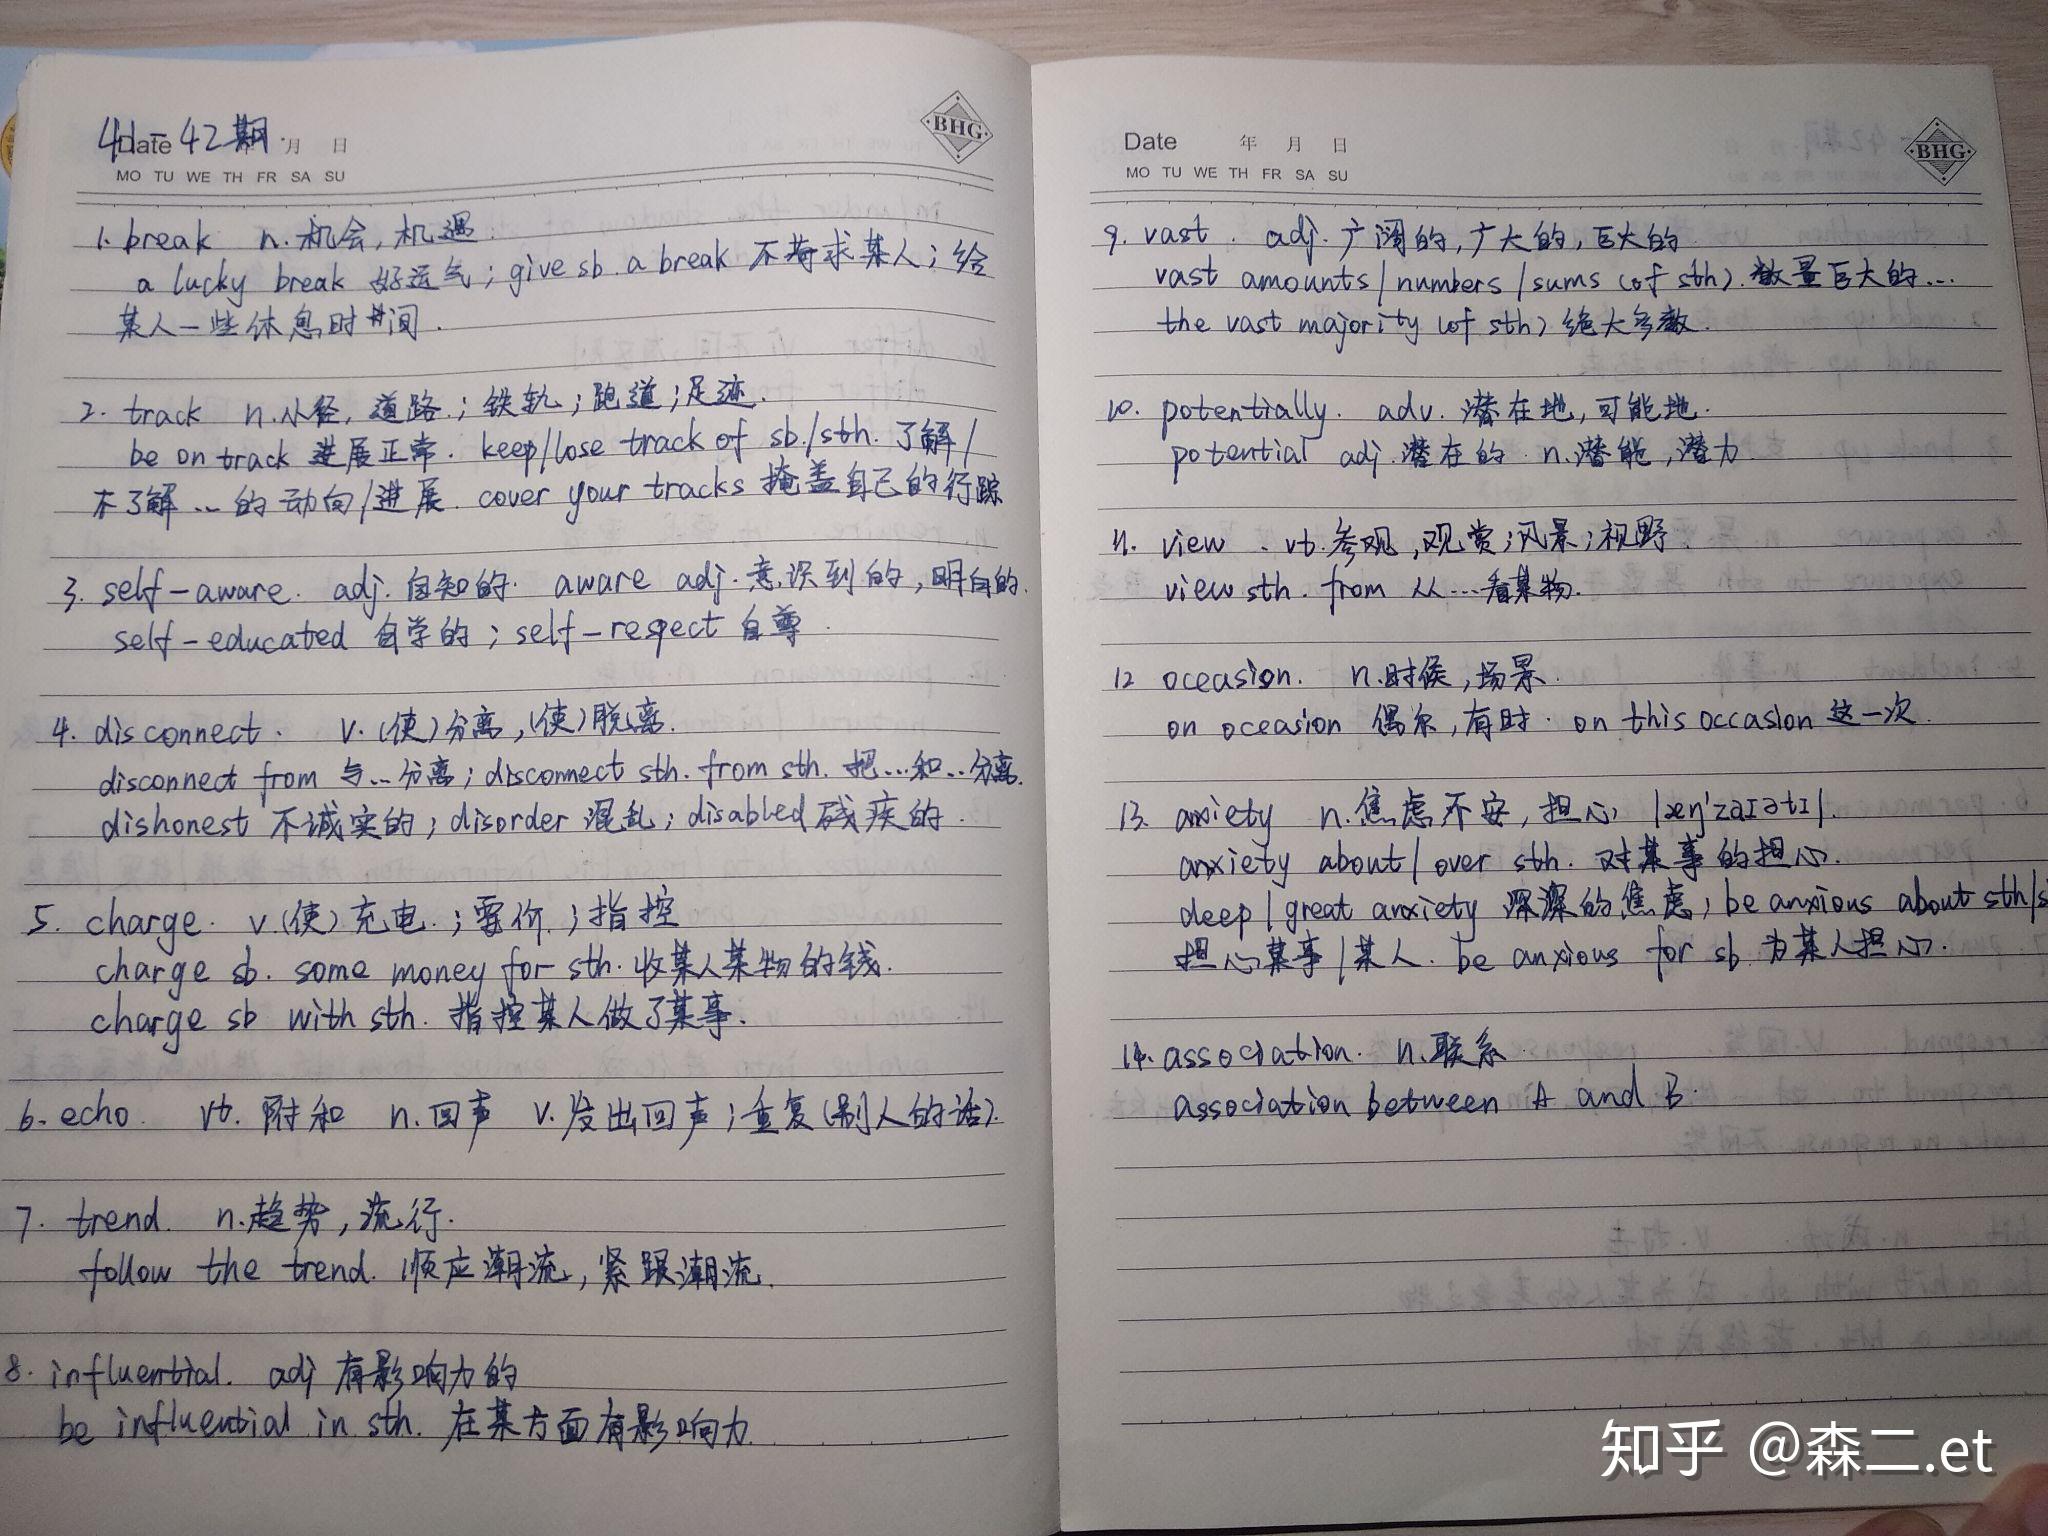 41-42期
Date 年 月 日
MO TU WE TH FR SA SU
BHG
1. break n.机会,机遇.
a lucky break 好运气;give sb. a break 不苛求某人;给
某人一些休息时间.
2. track n.小径,道路.;铁轨;跑道;足迹.
be on track 进展正常. keep/lose track of sb./sth. 了解/
不了解…的动向/进展. cover your tracks 掩盖自己的行踪
3. self-aware. adj.自知的. aware adj.意识到的,明白的.
self-educated 自学的;self-respect 自尊.
4. disconnect. v.(使)分离,(使)脱离.
disconnect from 与…分离;disconnect sth. from sth. 把…和…分离.
dishonest 不诚实的;disorder 混乱;disabled 残疾的.
5. charge. v.(使)充电.;要价.;指控
charge sb. some money for sth. 收某人某物的钱.
charge sb with sth. 指控某人做了某事.
6. echo. vt. 附和 n.回声 v.发出回声;重复(别人的话).
7. trend. n.趋势,流行.
follow the trend. 顺应潮流,紧跟潮流.
8. influential. adj 有影响力的
be influential in sth. 在某方面有影响力.
Date 年 月 日
MO TU WE TH FR SA SU
BHG
9. vast. adj.广阔的,广大的,巨大的.
vast amounts/numbers/sums (of sth).数量巨大的…
the vast majority (of sth) 绝大多数.
10. potentially. adv.潜在地,可能地.
potential adj.潜在的. n.潜能,潜力.
11. view. vt.参观,观赏;风景;视野.
view sth. from 从…看某物.
12 oceasion. n.时候,场景.
on oceasion 偶尔,有时. on this occasion 这一次.
13. anxiety n.焦虑不安,担心 /æŋ'zaɪətɪ/.
anxiety about/over sth. 对某事的担心.
deep/great anxiety 深深的焦虑;be anxious about sth/s
担心某事/某人. be anxious for sb. 为某人担心.
14. association. n.联系.
association between A and B.
知乎 @森二.et